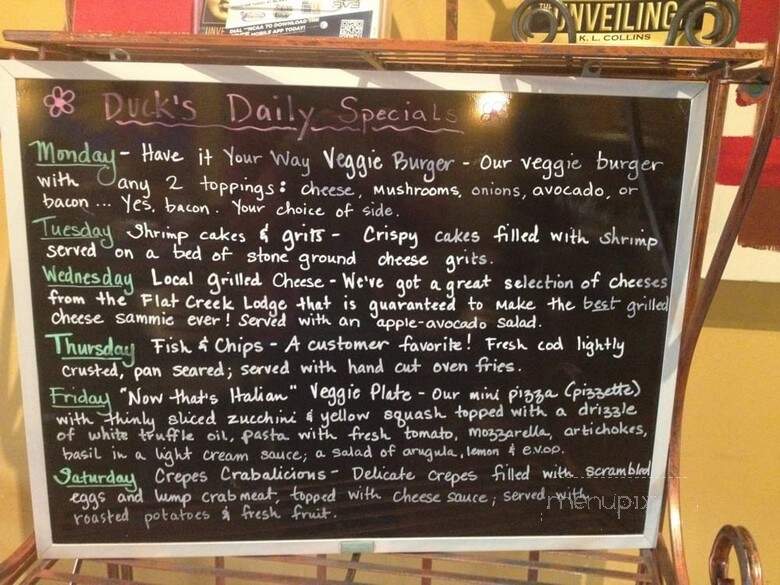 UNVEILING
K. L. COLLINS
MOBILE APP TODAY!
Duck's Daily Specials
Monday - Have it Your Way Veggie Burger - Our veggie burger
with any 2 toppings: cheese, mushrooms, onions, avocado, or
bacon ... Yes, bacon. Your choice of side.
Tuesday Shrimp cakes & grits - Crispy cakes filled with shrimp
served on a bed of stone ground cheese grits.
Wednesday Local grilled Cheese - We've got a great selection of cheeses
from the Flat Creek Lodge that is guaranteed to make the best grilled
cheese sammie ever! Served with an apple-avocado salad.
Thursday Fish & Chips - A customer favorite! Fresh cod lightly
crusted, pan seared; served with hand cut oven fries.
Friday "Now that's Italian" Veggie Plate - Our mini pizza (pizzette)
with thinly sliced zucchini & yellow squash topped with a drizzle
of white truffle oil, pasta with fresh tomato, mozzarella, artichokes,
basil in a light cream sauce; a salad of arugula, lemon & e.v.o.o.
Saturday Crepes Crabalicious - Delicate crepes filled with scrambled
eggs and lump crabmeat, topped with cheese sauce; served with
roasted potatoes & fresh fruit.
menupix